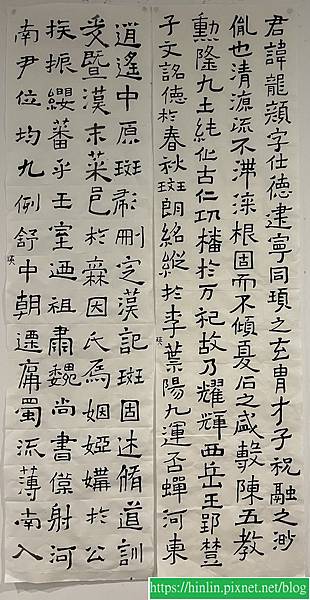 君諱龍顏字仕德建寧同頊之玄冑才子祝融之眇
胤也清源流不滯深根固而不傾夏后之盛敷陳五教
勳隆九土純化古仁功播於万祀故乃耀輝西岳王郢楚
子文詺德於春秋斑朗紹縱於季葉陽九運否蟬河東
逍遙中原斑彪刪定漢記斑固述脩道訓
爰暨漢末菜邑於爨因氏焉姻婭媾於公
族振纓蕃乎王室迺祖肅魏尚書僕射河
南尹位均九例舒中朝遷庸蜀流薄南入
https://hinlin.pixnet.net/blog